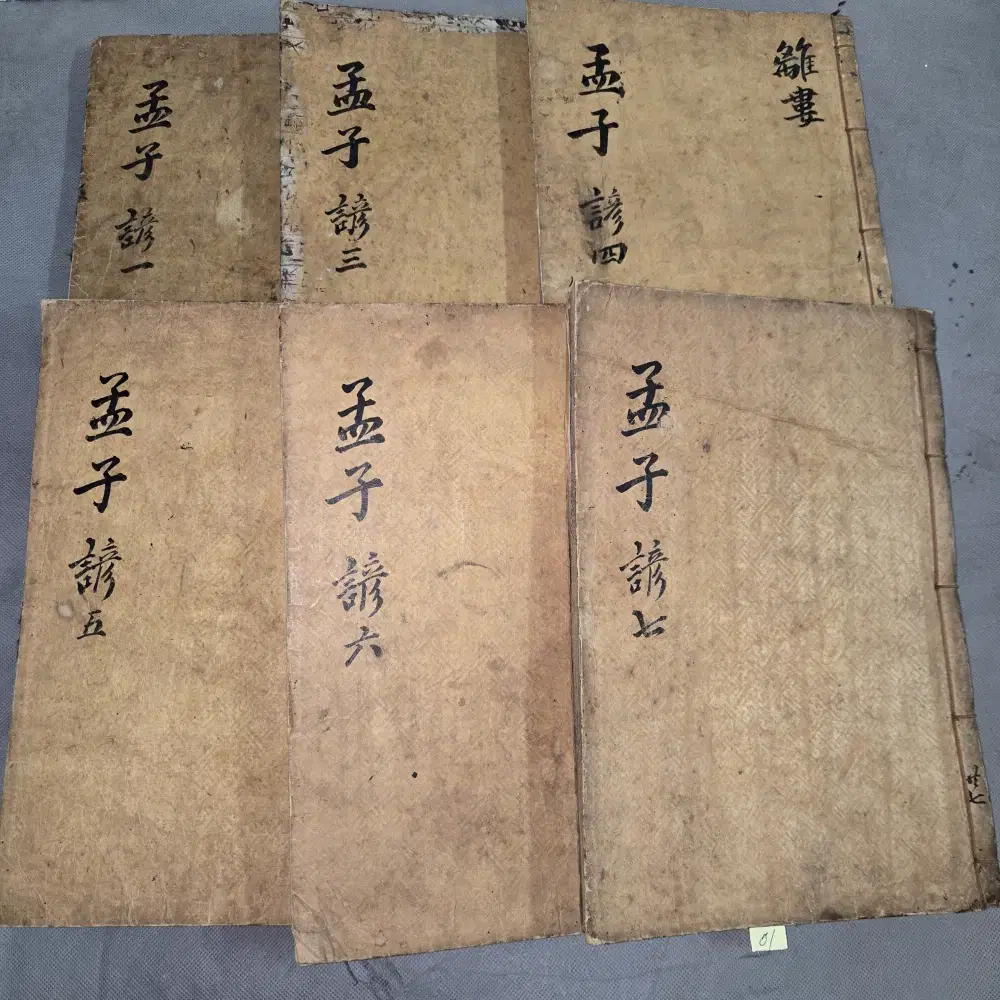 孟子 諺一
孟子 諺三
離婁
孟子 諺四
孟子 諺五
孟子 諺六
孟子 諺七
共七
01